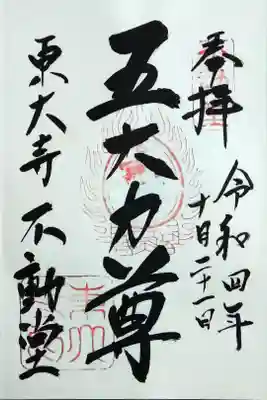 奉拝
令和四年
十月二十一日
五大力尊
東大寺 不動堂